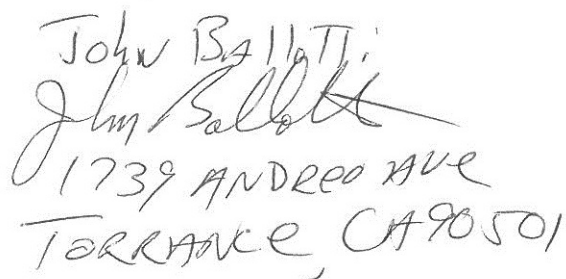 John Ballotti
John Ballotti
1739 ANDREO AVE
TORRANCE CA 90501